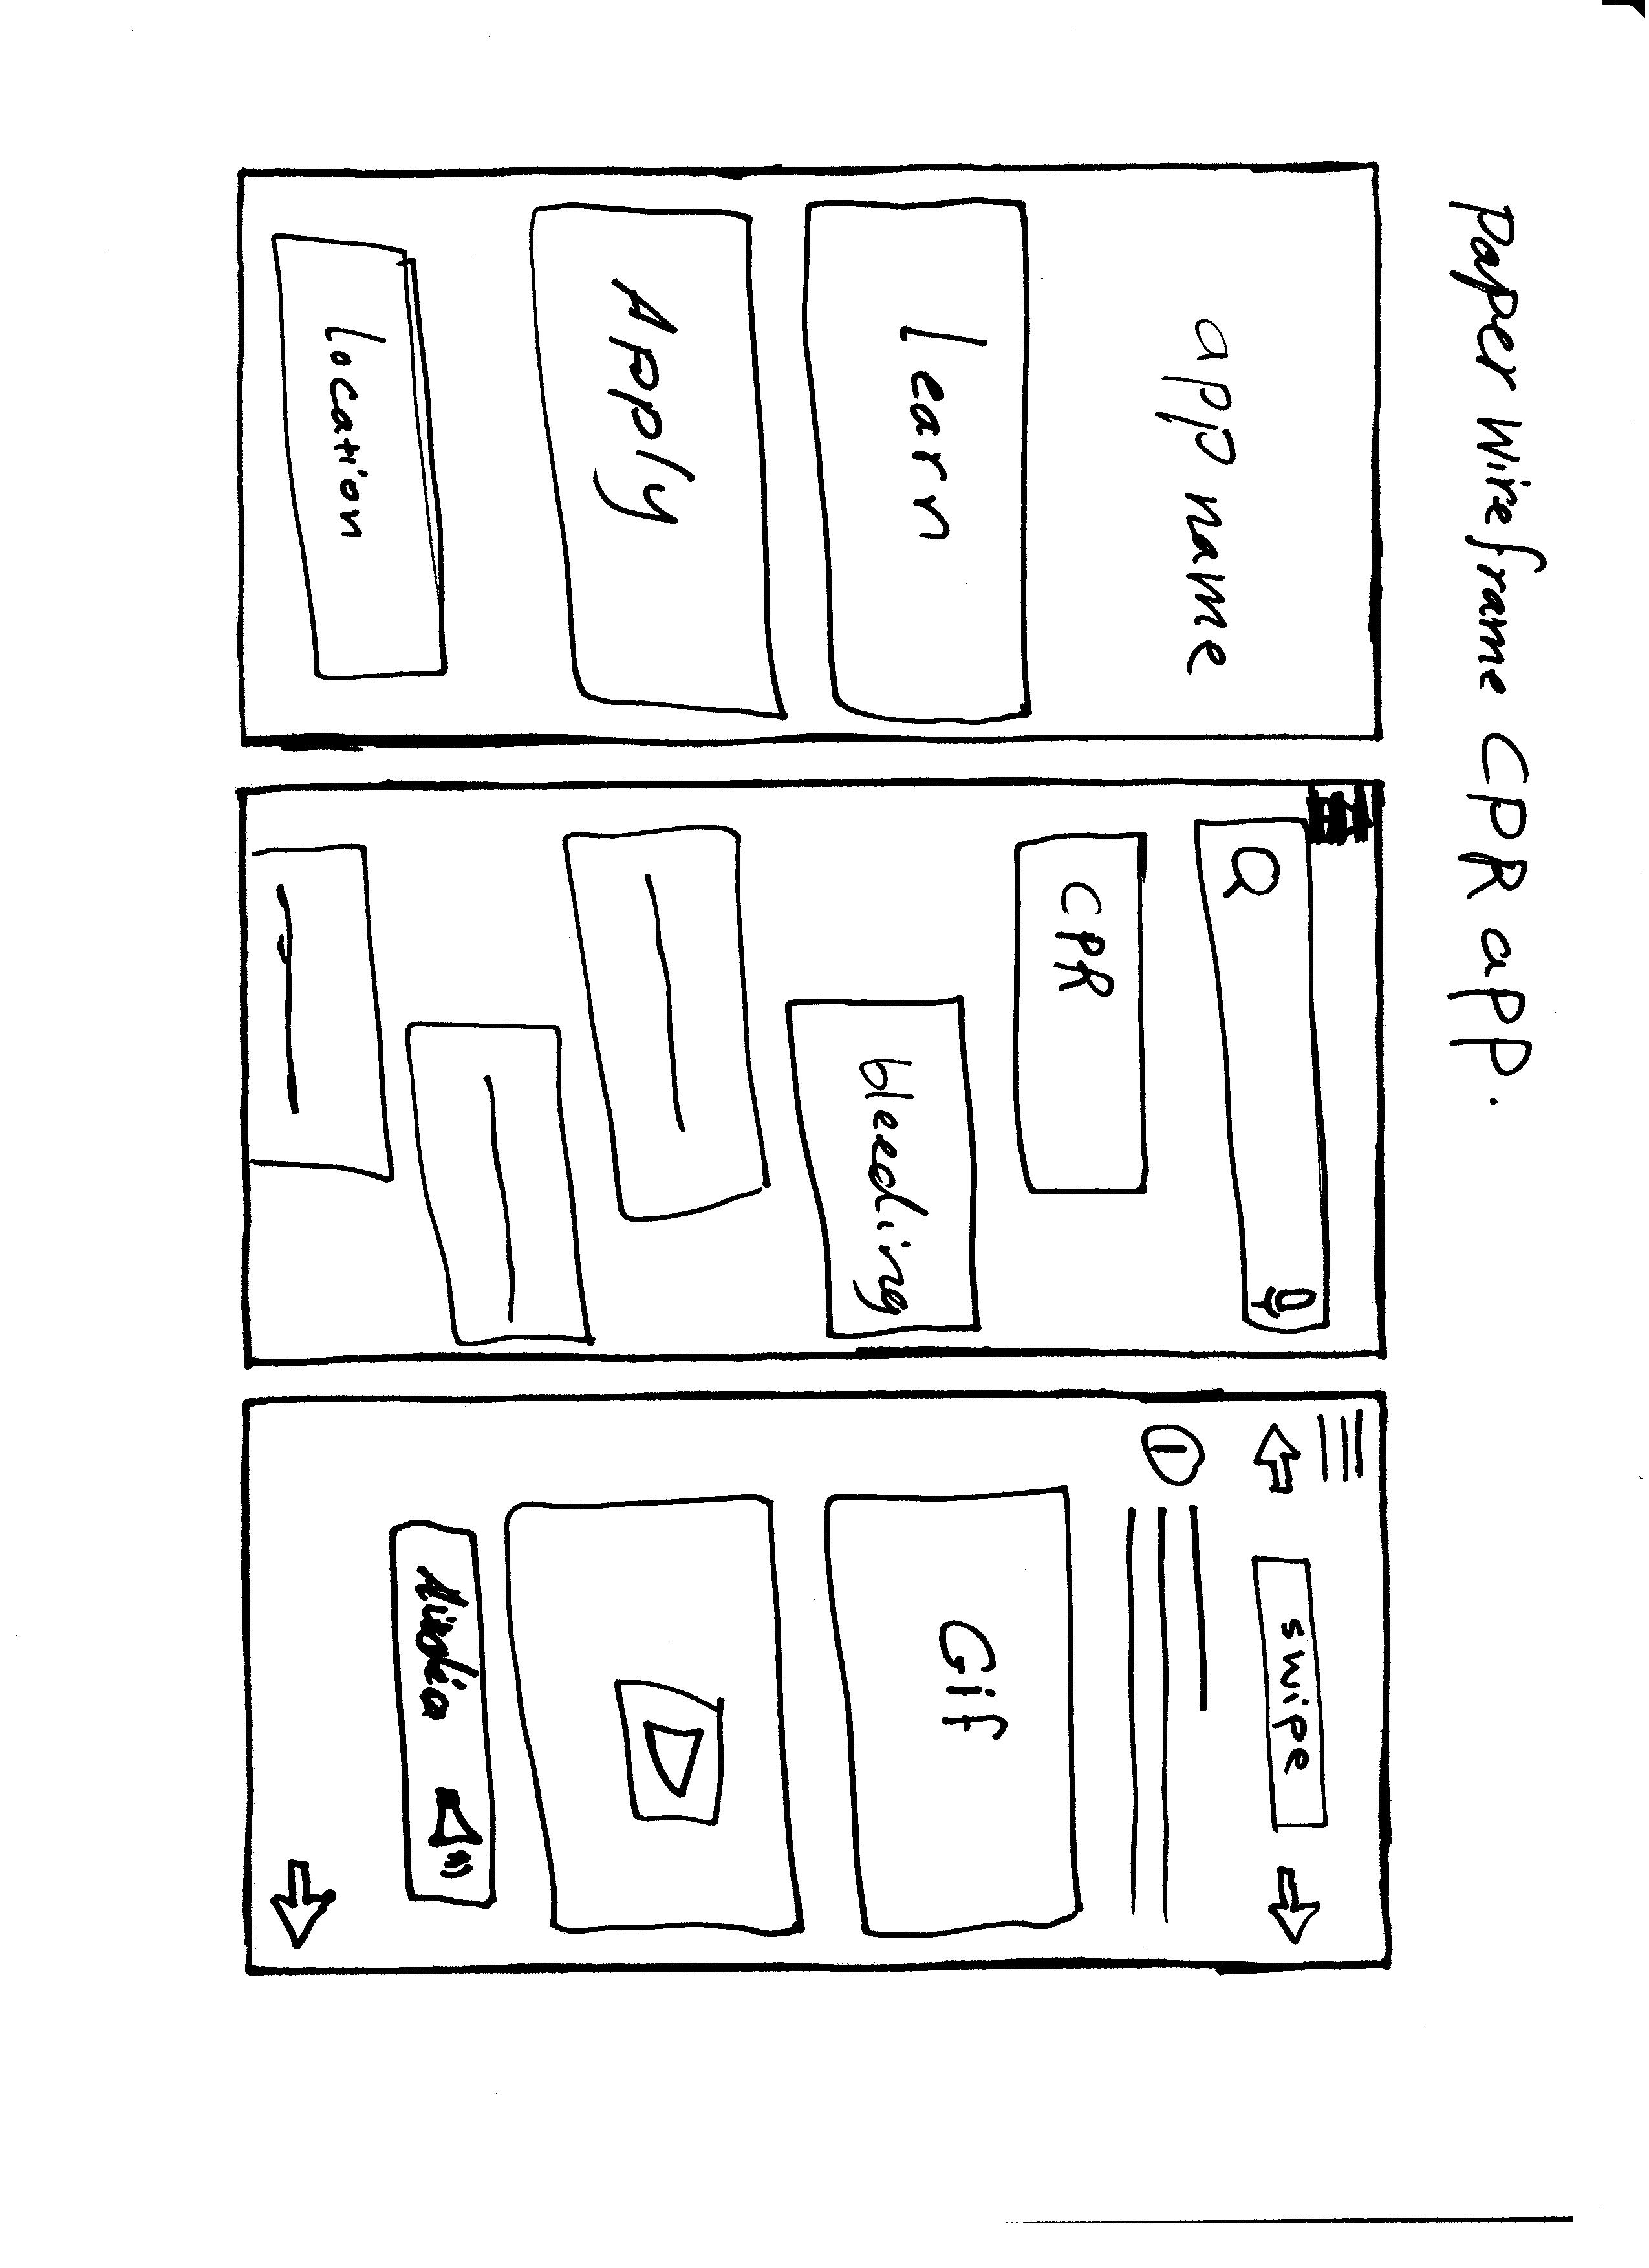 Paper Wireframe CPR app.
app name
learn
Apply
location
CPR
bleeding
swipe
1
Gif
Audio